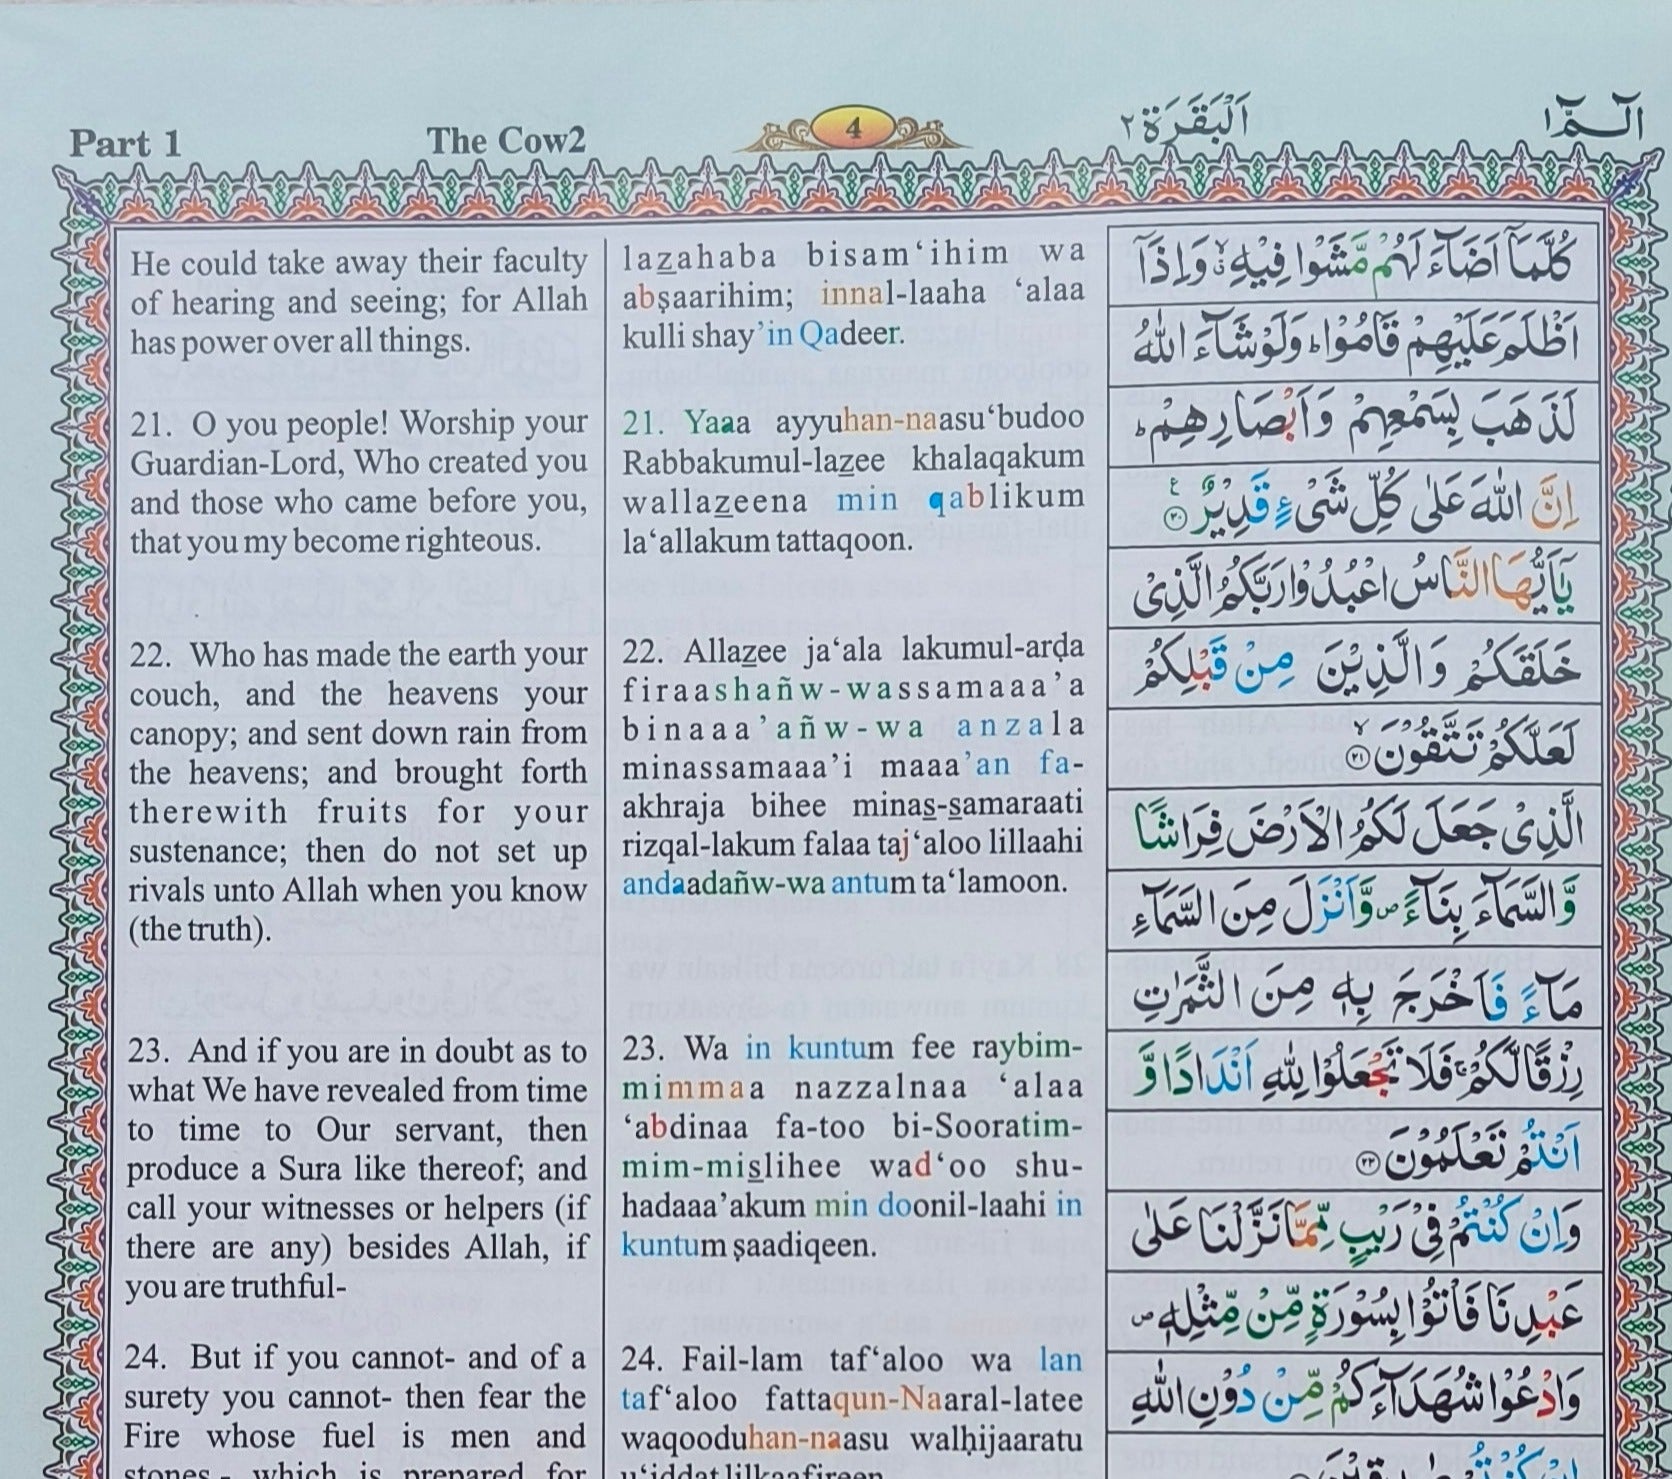 Part 1 The Cow2 4 اَلْبَقَرَة ٢ الٓـمّٓ ١
He could take away their faculty
of hearing and seeing; for Allah
has power over all things.
21. O you people! Worship your
Guardian-Lord, Who created you
and those who came before you,
that you my become righteous.
22. Who has made the earth your
couch, and the heavens your
canopy; and sent down rain from
the heavens; and brought forth
therewith fruits for your
sustenance; then do not set up
rivals unto Allah when you know
(the truth).
23. And if you are in doubt as to
what We have revealed from time
to time to Our servant, then
produce a Sura like thereof; and
call your witnesses or helpers (if
there are any) besides Allah, if
you are truthful-
24. But if you cannot- and of a
surety you cannot- then fear the
Fire whose fuel is men and
stones,- which is prepared for
lazahaba bisam‘ihim wa
abṣaarihim; innal-laaha ‘alaa
kulli shay’in Qadeer.
21. Yaaa ayyuhan-naasu‘budoo
Rabbakumul-lazee khalaqakum
wallazeena min qablikum
la‘allakum tattaqoon.
22. Allazee ja‘ala lakumul-arḍa
firaashañw-wassamaaa’a
binaaa’añw-wa anzala
minassamaaa’i maaa’an fa-
akhraja bihee minas-samaraati
rizqal-lakum falaa taj‘aloo lillaahi
andaadañw-wa antum ta‘lamoon.
23. Wa in kuntum fee raybim-
mimmaa nazzalnaa ‘alaa
‘abdinaa fa-too bi-Sooratim-
mim-mislihee wad‘oo shu-
hadaaa’akum min doonil-laahi in
kuntum ṣaadiqeen.
24. Fail-lam taf‘aloo wa lan
taf‘aloo fattaqun-Naaral-latee
waqooduhan-naasu walḥijaaratu
u‘iddat lilkaafireen.
كُلَّمَاۤ اَضَآءَ لَهُمْ مَّشَوْا فِيْهِۙ وَاِذَاۤ
اَظْلَمَ عَلَيْهِمْ قَامُوْاؕ وَلَوْ شَآءَ اللّٰهُ
لَذَهَبَ بِسَمْعِهِمْ وَاَبْصَارِهِمْؕ
اِنَّ اللّٰهَ عَلٰى كُلِّ شَىْءٍ قَدِيْرٌ ۟ ٢٠
يٰۤاَيُّهَا النَّاسُ اعْبُدُوْا رَبَّكُمُ الَّذِىْ
خَلَقَكُمْ وَالَّذِيْنَ مِنْ قَبْلِكُمْ
لَعَلَّكُمْ تَتَّقُوْنَۙ ٢١
الَّذِىْ جَعَلَ لَكُمُ الْاَرْضَ فِرَاشًا
وَّالسَّمَآءَ بِنَآءًص وَّاَنْزَلَ مِنَ السَّمَآءِ
مَآءً فَاَخْرَجَ بِهٖ مِنَ الثَّمَرٰتِ
رِزْقًا لَّكُمْۚ فَلَا تَجْعَلُوْا لِلّٰهِ اَنْدَادًا وَّ
اَنْتُمْ تَعْلَمُوْنَ ٢٢
وَاِنْ كُنْتُمْ فِىْ رَيْبٍ مِّمَّا نَزَّلْنَا عَلٰى
عَبْدِنَا فَاْتُوْا بِسُوْرَةٍ مِّنْ مِّثْلِهٖص
وَادْعُوْا شُهَدَآءَكُمْ مِّنْ دُوْنِ اللّٰهِ